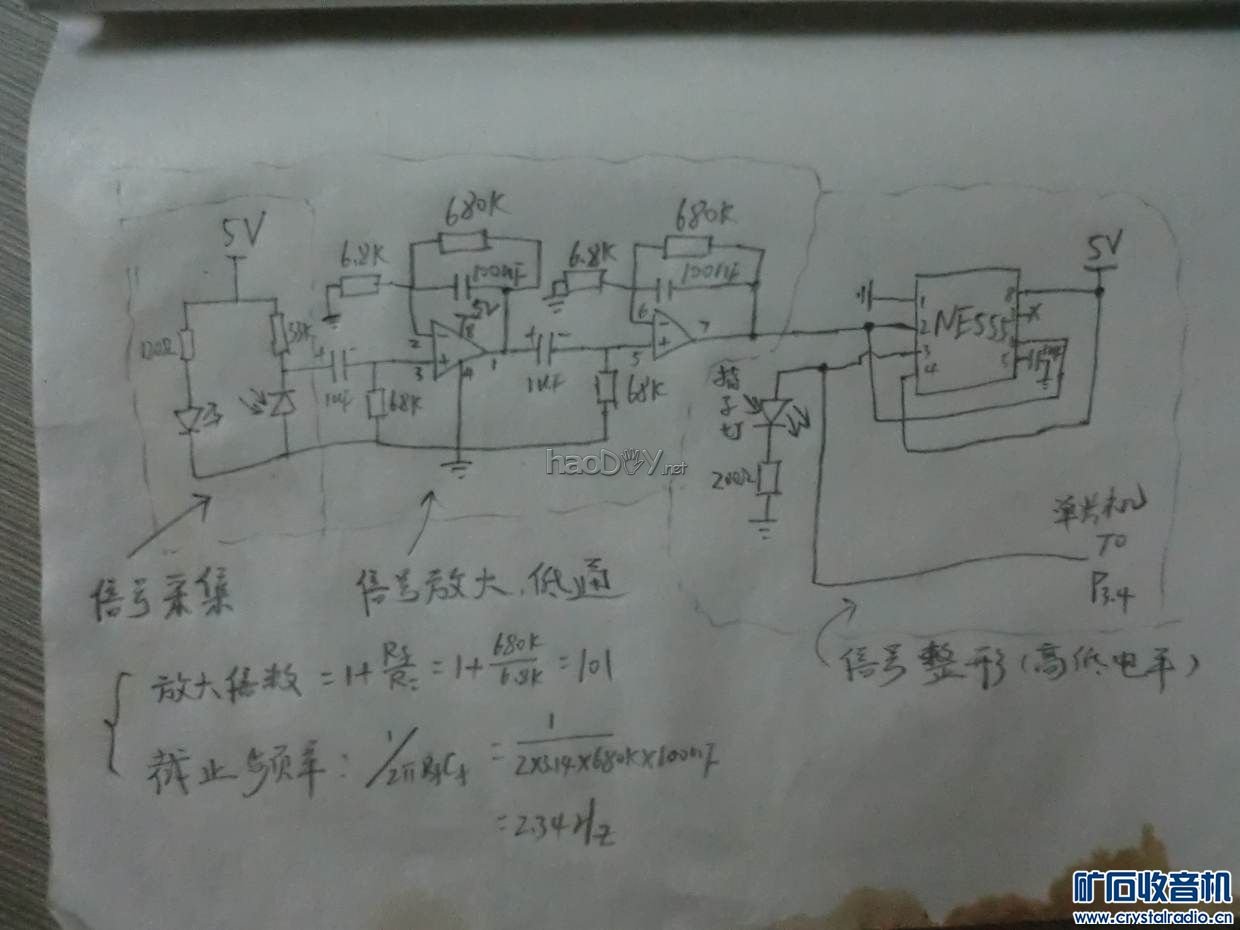 680K
680K
5V
6.8K
6.8K
5V
100nF
100nF
5V
8
1
8
NE555
2
6
7
2
3
1
5
3
4
5
4
1uf
68K
1uf
68K
指
示
灯
200Ω
haoDIY.net
单片机
T0
P3.4
信号采集
信号放大、低通
信号整形(高低电平)
放大倍数 = 1+Rf/Ri = 1+680K/6.8K = 101
截止频率: 1/2πRfCf = 1/2×3.14×680K×100nF
=2.34Hz
矿石收音机
www.crystalradio.cn